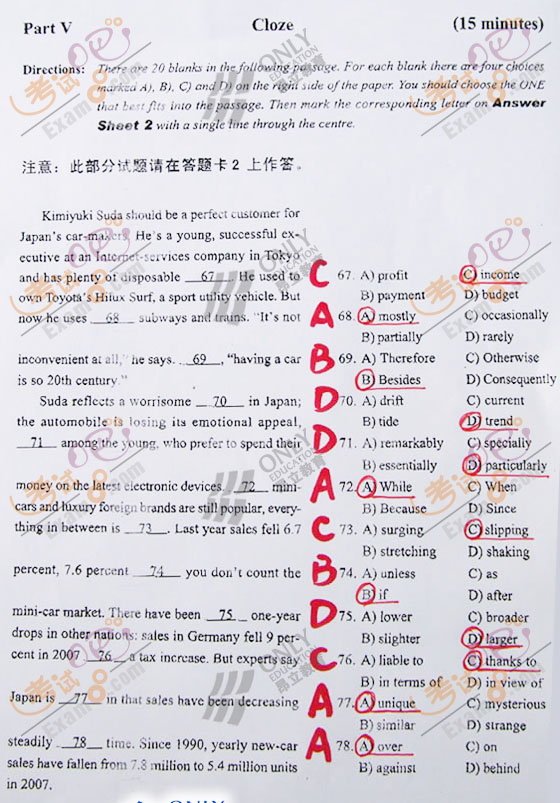 Part V Cloze (15 minutes)
Directions: There are 20 blanks in the following passage. For each blank there are four choices
marked A), B), C) and D) on the right side of the paper. You should choose the ONE
that best fits into the passage. Then mark the corresponding letter on Answer
Sheet 2 with a single line through the centre.
注意：此部分试题请在答题卡 2 上作答。
Kimiyuki Suda should be a perfect customer for
Japan's car-makers. He's a young, successful ex-
ecutive at an Internet-services company in Tokyo
and has plenty of disposable 67 . He used to C 67. A) profit C) income
own Toyota's Hilux Surf, a sport utility vehicle. But B) payment D) budget
now he uses 68 subways and trains. "It's not A 68. A) mostly C) occasionally
B) partially D) rarely
inconvenient at all," he says. 69 , "having a car B 69. A) Therefore C) Otherwise
is so 20th century." B) Besides D) Consequently
Suda reflects a worrisome 70 in Japan; D 70. A) drift C) current
the automobile is losing its emotional appeal, B) tide D) trend
71 among the young, who prefer to spend their D 71. A) remarkably C) specially
B) essentially D) particularly
money on the latest electronic devices. 72 mini- A 72. A) While C) When
cars and luxury foreign brands are still popular, every- B) Because D) Since
thing in between is 73 . Last year sales fell 6.7 C 73. A) surging C) slipping
B) stretching D) shaking
percent, 7.6 percent 74 you don't count the B 74. A) unless C) as
B) if D) after
mini-car market. There have been 75 one-year D 75. A) lower C) broader
drops in other nations: sales in Germany fell 9 per- B) slighter D) larger
cent in 2007 76 a tax increase. But experts say C 76. A) liable to C) thanks to
B) in terms of D) in view of
Japan is 77 in that sales have been decreasing A 77. A) unique C) mysterious
B) similar D) strange
steadily 78 time. Since 1990, yearly new-car A 78. A) over C) on
sales have fallen from 7.8 million to 5.4 million units B) against D) behind
in 2007.
考试吧
Exam8.com
ONLY
EDUCATION
昂立教育